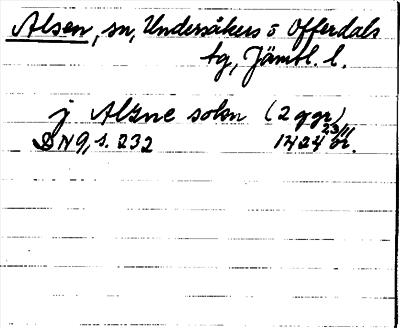 Alsen, sn, Undersåkers o Offerdals
tg, Jämtl. l.
j Alzne sokn (2 ggr)
DN 9, s. 232 1424 23/11 or.